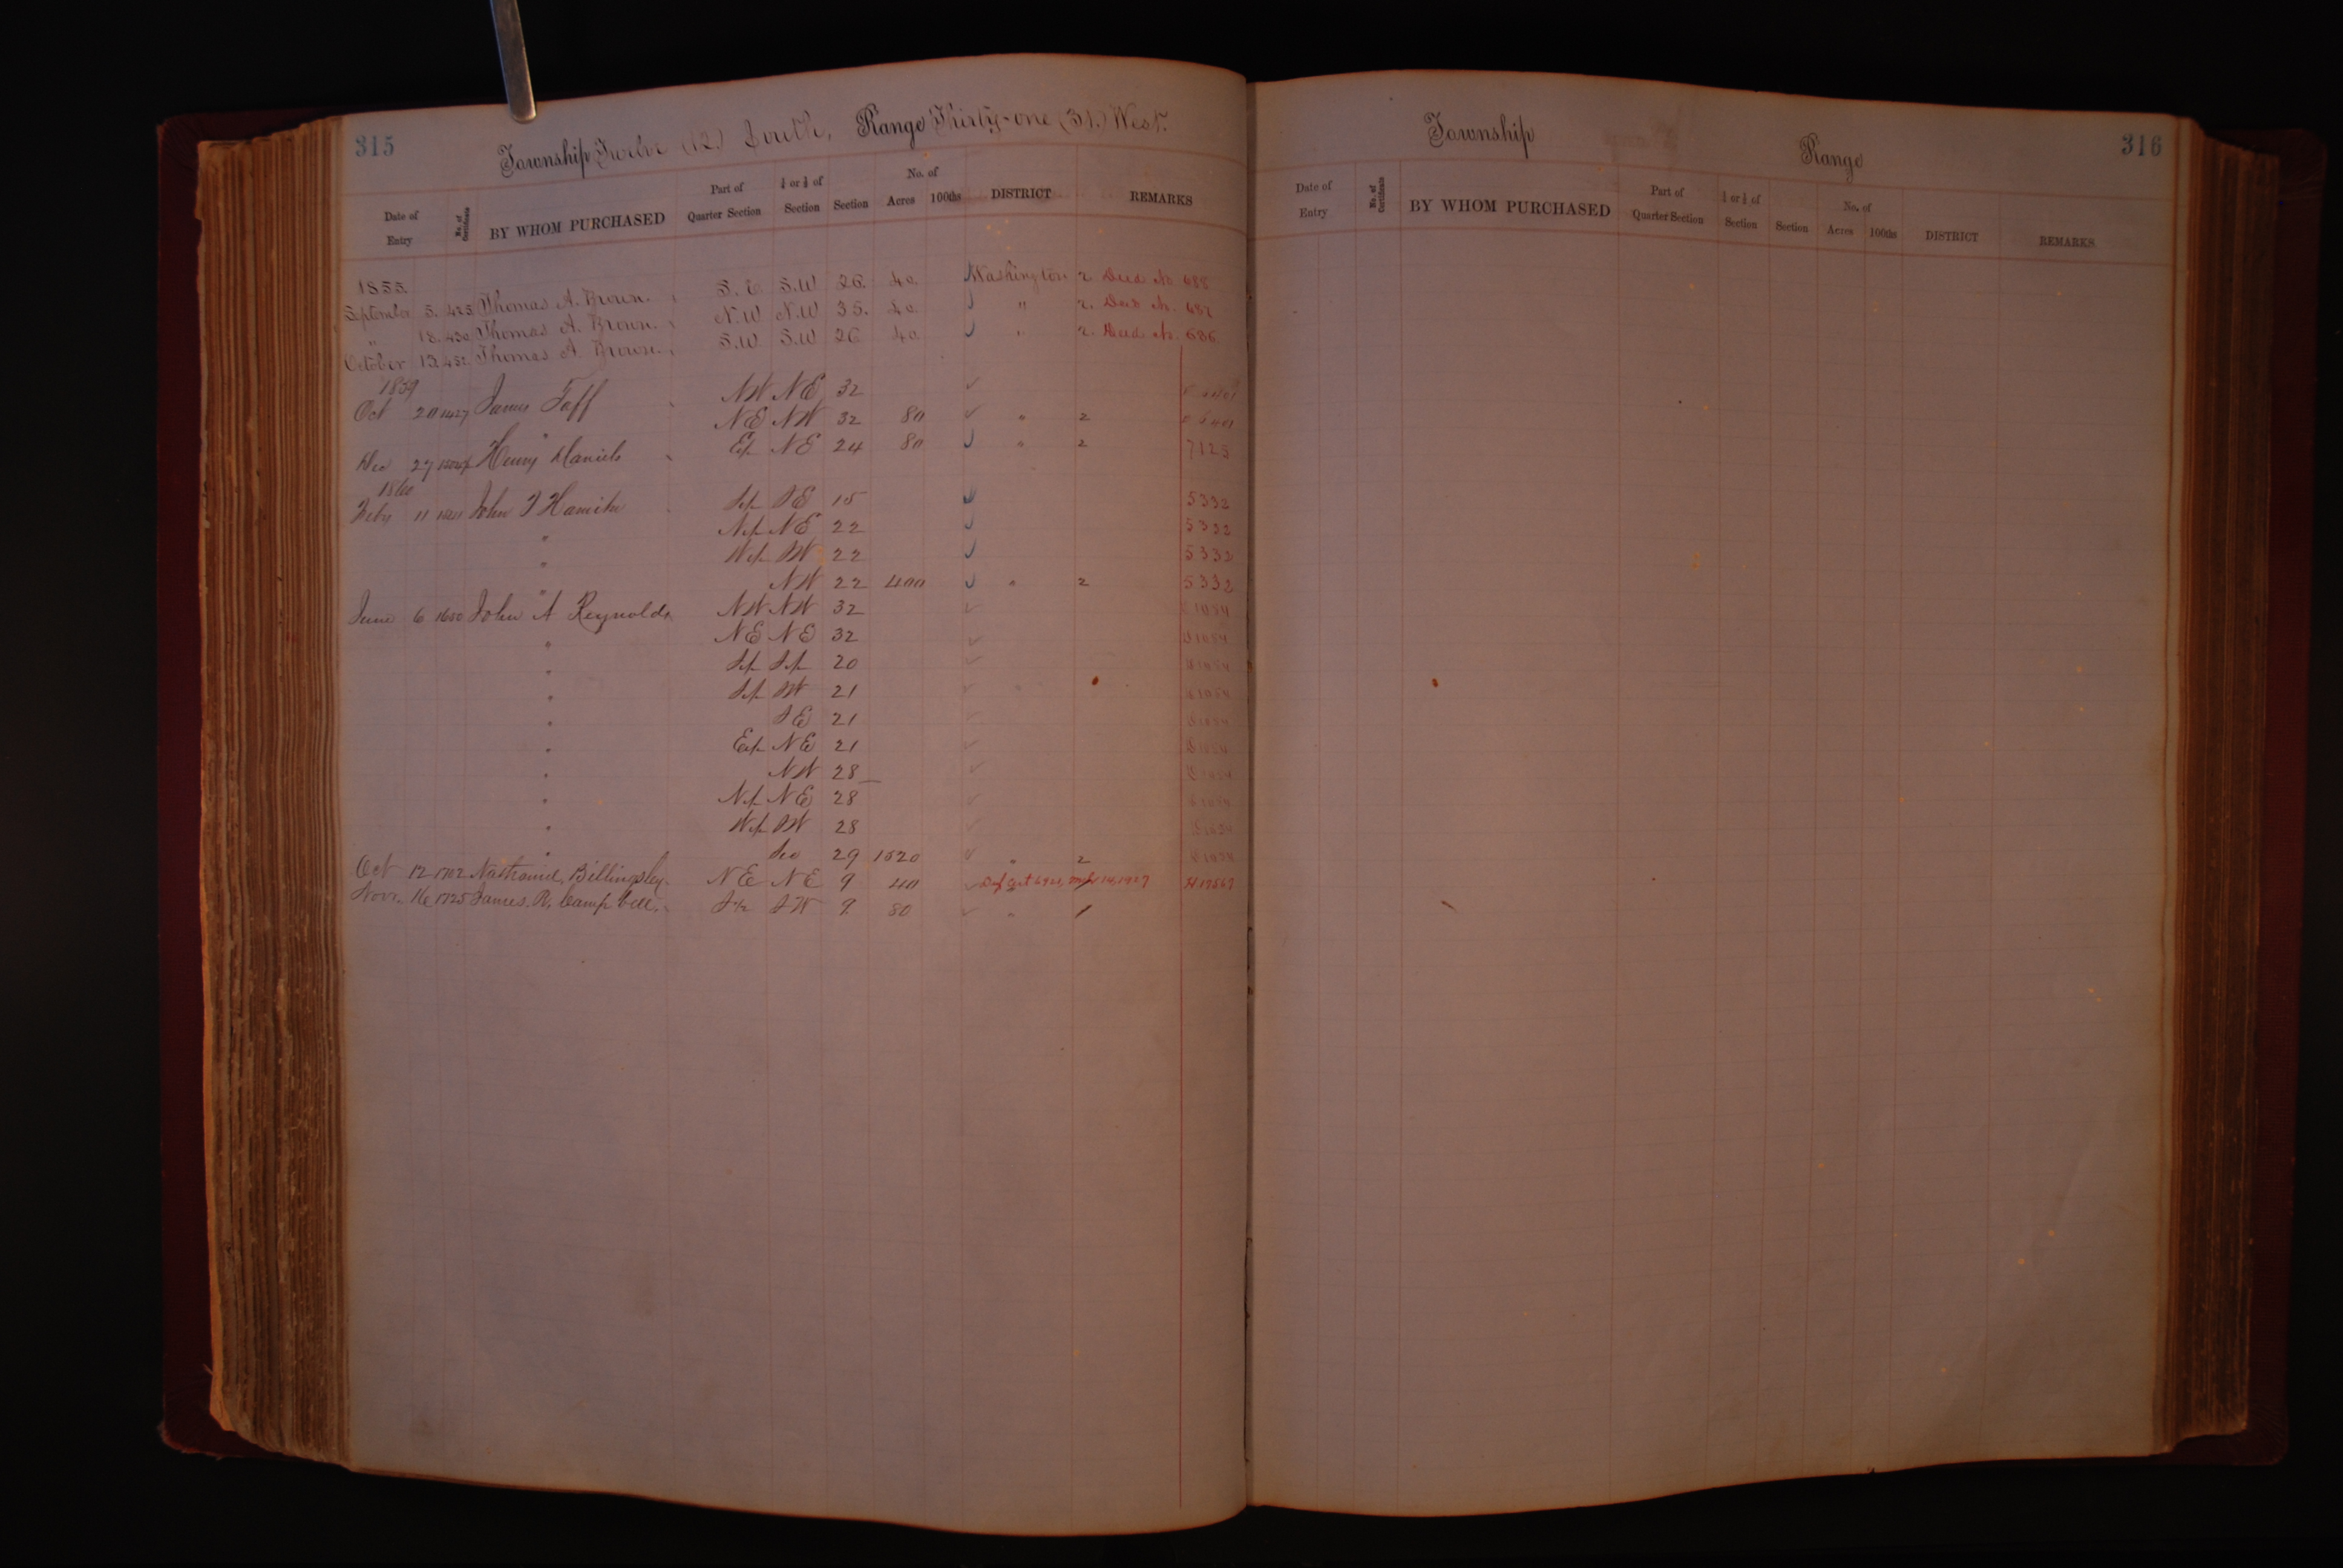 315
Township Twelve (12.) South, Range Thirty-one (31.) West.
Date of Entry No. of Certificate BY WHOM PURCHASED Part of Quarter Section ¼ or ½ of Section Section No. of Acres 100ths DISTRICT REMARKS
1855.
September 5. 425 Thomas A. Brown. S. E. S.W 26. 40. Washington 2 Deed No 688
" 18. 430 Thomas A. Brown. N.W N.W 35. 40. " 2. Deed No. 687
October 13. 452 Thomas A. Brown. S.W. S.W 26 40 " 2. Deed No. 686
1859
Oct 20 1427 James Taff NW NE 32
" NE NW 32 80 " 2
Dec 27 Henry Daniels E½ NE 24 80 " 2 7125
1860
Feby 11 John S½ SE 15 5332
" N½ NE 22 5332
" W½ SW 22 5332
" NW 22 400 " 2 5332
June 6 1650 John A Reynolds NW NW 32 1054
" NE NE 32 1054
" S½ S½ 20 1054
" S½ SW 21 1054
" SE 21 1054
" E½ NE 21 1054
" NW 28 1054
" N½ NE 28 1054
" W½ SW 28 1054
" Sec 29 1520 " 2 1054
Oct 12 1702 Nathaniel Billingsley. NE NE 9 40 14, 1927 H 17567
Novr. 16 1725 James. R. Campbell. S½ SW 9. 80 " 1
316
Township Range
Date of Entry No. of Certificate BY WHOM PURCHASED Part of Quarter Section ¼ or ½ of Section Section No. of Acres 100ths DISTRICT REMARKS